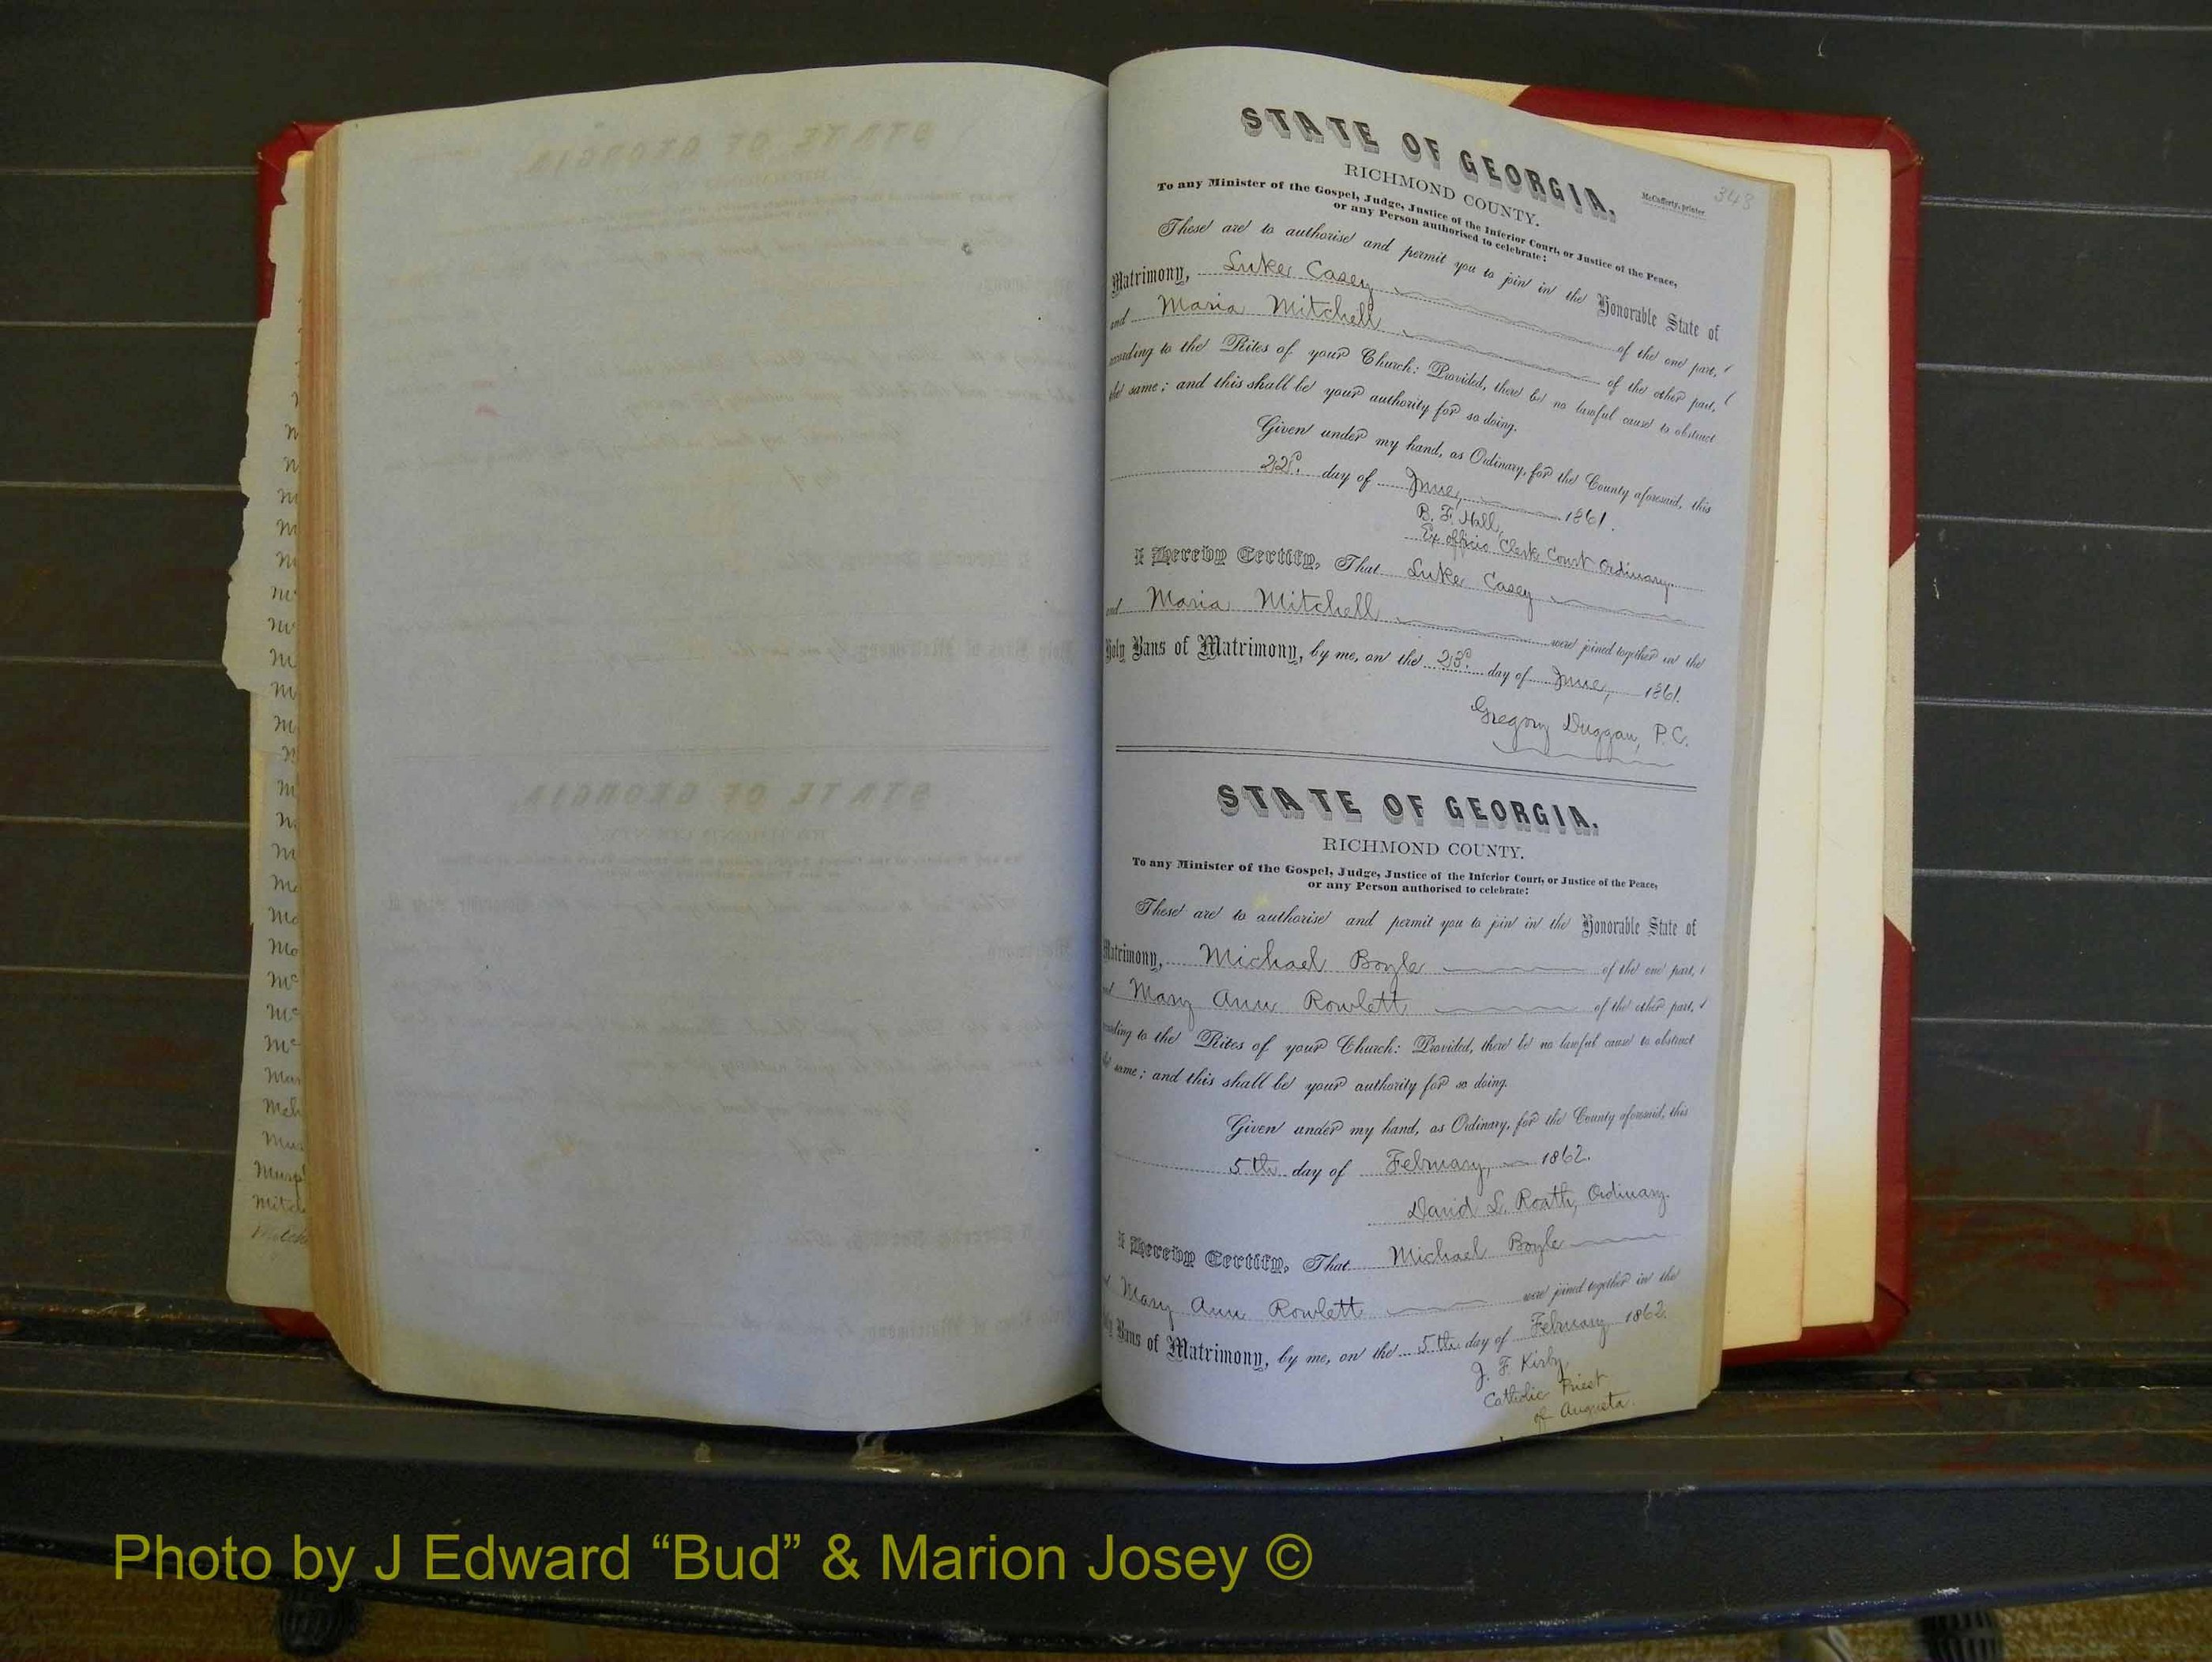 STATE OF GEORGIA,
McCafferty, printer
348
RICHMOND COUNTY.
To any Minister of the Gospel, Judge, Justice of the Inferior Court, or Justice of the Peace,
or any Person authorised to celebrate:
These are to authorise and permit you to join in the Honorable State of
Matrimony, Luke Casey of the one part,
and Maria Mitchell of the other part,
according to the Rites of your Church: Provided, there be no lawful cause to obstruct
the same; and this shall be your authority for so doing.
Given under my hand, as Ordinary, for the County aforesaid, this
22d. day of June, 1861.
B. F. Hall,
Ex officio Clerk Court Ordinary.
I Hereby Certify, That Luke Casey
and Maria Mitchell were joined together in the
Holy Bans of Matrimony, by me, on the 23d. day of June, 1861.
Gregory Duggan, P. C.
STATE OF GEORGIA.
RICHMOND COUNTY.
To any Minister of the Gospel, Judge, Justice of the Inferior Court, or Justice of the Peace,
or any Person authorised to celebrate:
These are to authorise and permit you to join in the Honorable State of
Matrimony, Michael Boyle of the one part,
and Mary Ann Rowlett of the other part,
according to the Rites of your Church: Provided, there be no lawful cause to obstruct
the same; and this shall be your authority for so doing.
Given under my hand, as Ordinary, for the County aforesaid, this
5th day of February, 1862.
David L. Roath, Ordinary.
I Hereby Certify, That Michael Boyle
Mary Ann Rowlett were joined together in the
Holy Bans of Matrimony, by me, on the 5th day of February 1862.
J. F. Kirby,
Catholic Priest
of Augusta.
Photo by J Edward “Bud” & Marion Josey ©